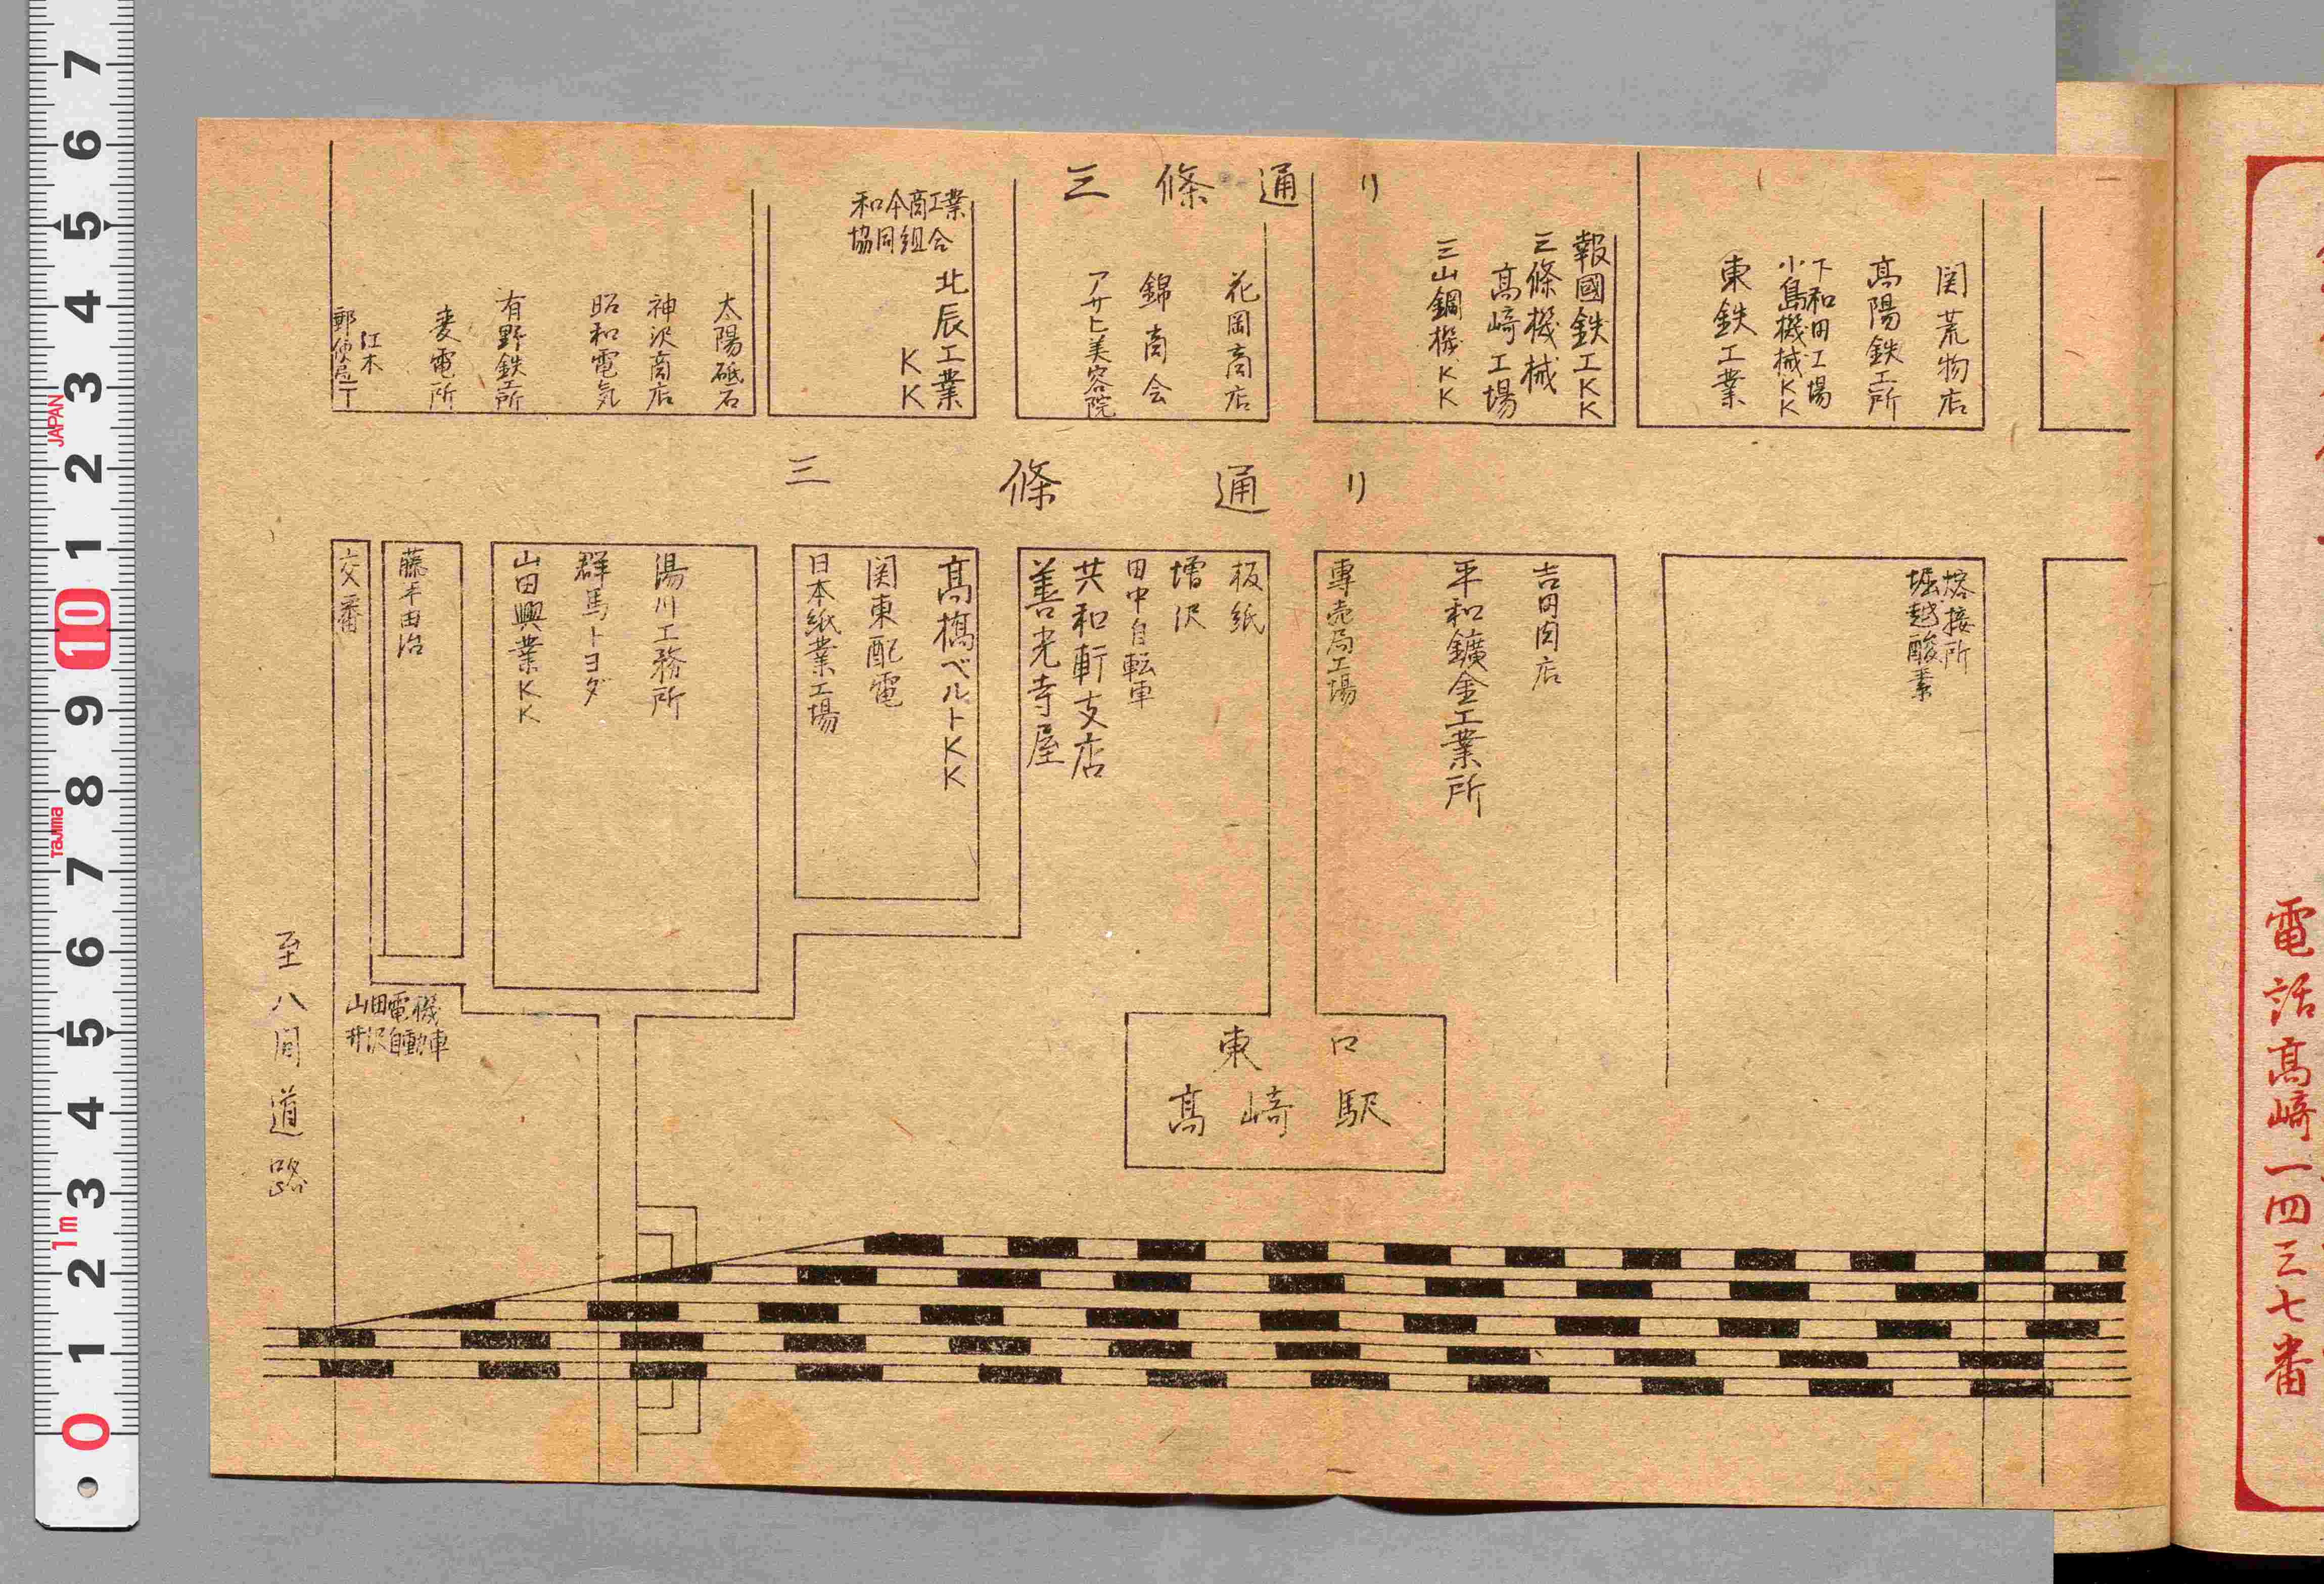 三條通り
関荒物店
高陽鉄工所
下和田工場
小島機械KK
東鉄工業
報國鉄工KK
三條機械
高崎工場
三山鋼機KK
花岡商店
錦商会
アサヒ美容院
和本商工業
協同組合
北辰工業
KK
太陽砥石
神沢商店
昭和電気
有野鉄工所
麦電所
江木
郵便局
三條通り
熔接所
堀越酸素
吉田肉店
平和鑛金工業所
專売局工場
板紙
増沢
田中自転車
共和軒支店
善光寺屋
高橋ベルトKK
関東配電
日本紙業工場
湯川工務所
群馬トヨダ
山田興業KK
藤平由治
交番
山田電機
井沢自動車
至八間道路
東口
高崎駅
電話高崎一四三七番
7
6
5
4
3
JAPAN
2
1
10
9
8
Tajima
7
6
5
4
3
1m
2
1
0